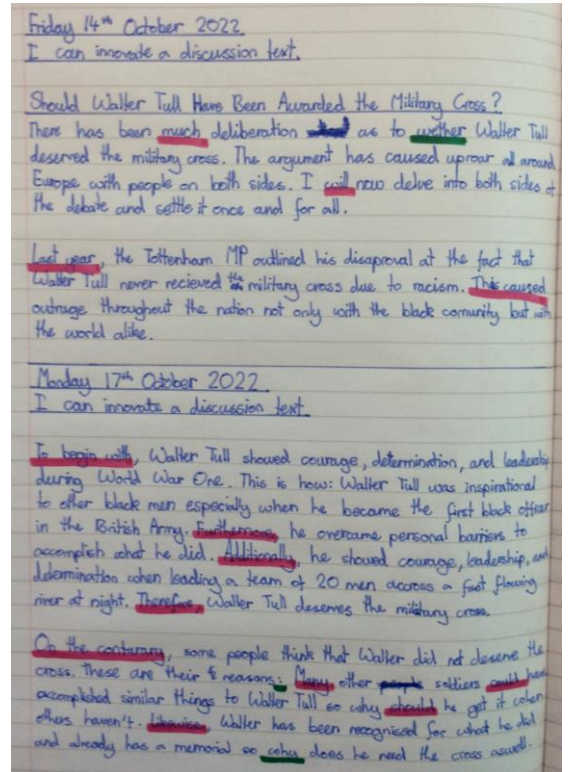 Friday 14th October 2022
I can innovate a discussion text.
Should Walter Tull Have Been Awarded the Military Cross?
There has been much deliberation as to wether Walter Tull
deserved the military cross. The argument has caused uproar all around
Europe with people on both sides. I will now delve into both sides of
the debate and settle it once and for all.
Last year, the Tottenham MP outlined his disaproval at the fact that
Walter Tull never recieved the military cross due to racism. This caused
outrage throughout the nation not only with the black comunity but with
the world alike.
Monday 17th October 2022
I can innovate a discussion text.
To begin with, Walter Tull showed courage, determination, and leadership
during World War One. This is how: Walter Tull was inspirational
to other black men especially when he became the first black officer
in the British Army. Furthermore, he overcame personal barriers to
accomplish what he did. Additionally, he showed courage, leadership, and
determination when leading a team of 20 men accross a fast flowing
river at night. Therefore, Walter Tull deserves the military cross.
On the contarary, some people think that Walter did not deserve the
cross. These are their reasons: Many other soldiers could have
accomplished similar things to Walter Tull so why should he get it when
others haven't. Likewise, Walter has been recognised for what he did
and already has a memorial so why does he need the cross aswell.